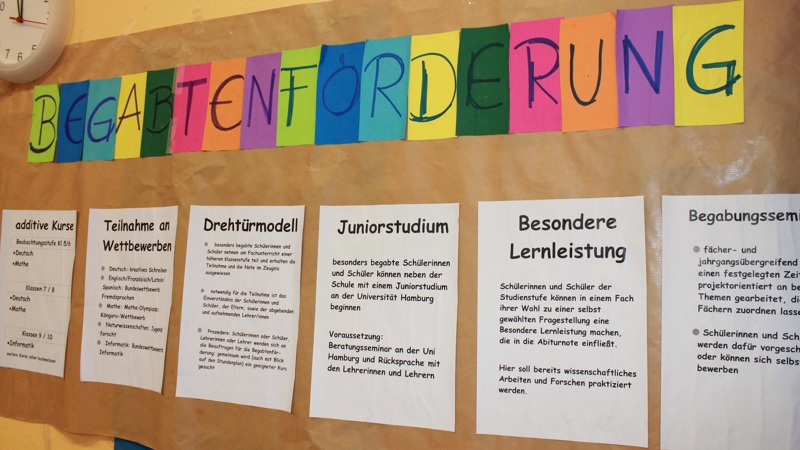 BEGABTENFÖRDERUNG
additive Kurse
Beobachtungsstufe Kl 5/6
•Deutsch
•Mathe
Klassen 7 / 8
•Deutsch
•Mathe
Klassen 9 / 10
•Informatik
Teilnahme an
Wettbewerben
Deutsch: kreatives Schreiben
Englisch/Französisch/Latein/
Spanisch: Bundeswettbewerb
Fremdsprachen
Mathe: Mathe-Olympiade;
Känguru-Wettbewerb
Naturwissenschaften: Jugend
forscht
Informatik: Bundeswettbewerb
Informatik
Drehtürmodell
besonders begabte Schülerinnen und
Schüler nehmen am Fachunterricht einer
höheren Klassenstufe teil und erhalten die
Teilnahme und die Note im Zeugnis
ausgewiesen
notwendig für die Teilnahme ist das
Einverständnis der Schülerinnen und
Schüler, der Eltern, sowie der abgebenden
und aufnehmenden Lehrer/innen
Prozedere: Schülerinnen oder Schüler,
Lehrerinnen oder Lehrer wenden sich an
die Beauftragen für die Begabtenför-
derung; gemeinsam wird (auch mit Blick
auf den Stundenplan) ein geeigneter Kurs
gesucht
Juniorstudium
besonders begabte Schülerinnen
und Schüler können neben der
Schule mit einem Juniorstudium
an der Universität Hamburg
beginnen
Voraussetzung:
Beratungsseminar an der Uni
Hamburg und Rücksprache mit
den Lehrerinnen und Lehrern
Besondere
Lernleistung
Schülerinnen und Schüler der
Studienstufe können in einem Fach
ihrer Wahl zu einer selbst
gewählten Fragestellung eine
Besondere Lernleistung machen,
die in die Abiturnote einfließt.
Hier soll bereits wissenschaftliches
Arbeiten und Forschen praktiziert
werden.
Begabungssemi
fächer- und
jahrgangsübergreifend
einen festgelegten Zei
projektorientiert an be
Themen gearbeitet, die
Fächern zuordnen lasse
Schülerinnen und Sch
werden dafür vorgesch
oder können sich selbs
bewerben